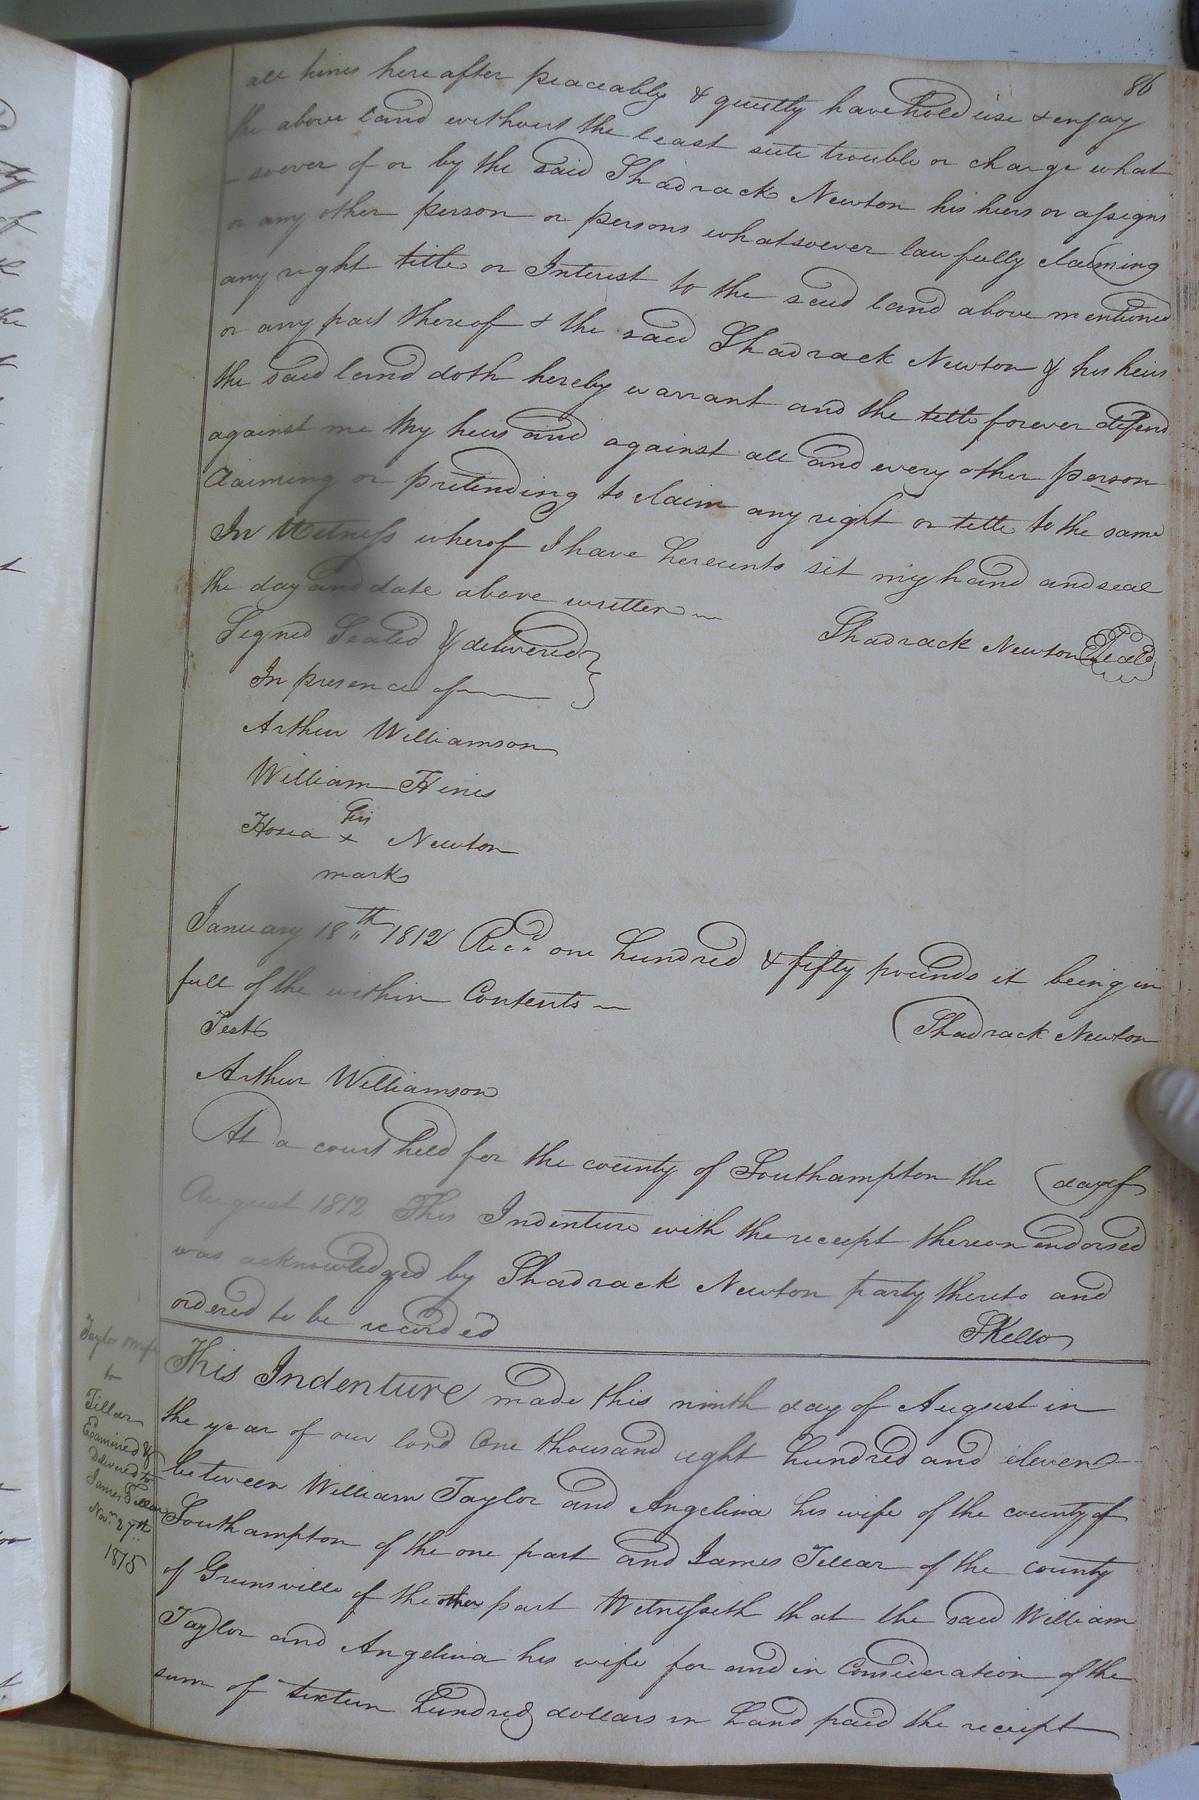 86
all times hereafter peaceably & quietly have hold use & enjoy
the above land without the least suite trouble or charge what
-soever of or by the said Shadrack Newton his heirs or assigns
or any other person or persons whatsoever lawfully claiming
any right title or Interest to the said land above mentioned
or any part thereof & the said Shadrack Newton & his heirs
the said land doth hereby warrant and the title forever defend
against me my heirs and against all and every other person
Claiming or pretending to claim any right or title to the same
In Witness wherof I have hereunto sit my hand and seal
the day and date above written
Shadrack Newton Seal
Signed Sealed & delivered
In presence of
Arthur Williamson
William Hines
his
Hosea x Newton
mark
January 18th 1812 Recd one hundred & fifty pounds it being in
full of the within Contents
Shadrack Newton
Test
Arthur Williamson
At a court held for the county of Southampton the day of
August 1812 This Indenture with the receipt thereon endorsed
was acknowledged by Shadrack Newton party thereto and
ordered to be recorded
SKello
Taylor & wife
to
Tillar
Examined &
delivered to
James Tillar
Novr 27th
1815
This Indenture made this ninth day of August in
the year of our lord One thousand eight hundred and eleven
between William Taylor and Angelina his wife of the county of
Southampton of the one part and James Tillar of the county
of Greensville of the other part Witnesseth that the said William
Taylor and Angelina his wife for and in Consideration of the
sum of sixteen hundred dollars in hand paid the receipt